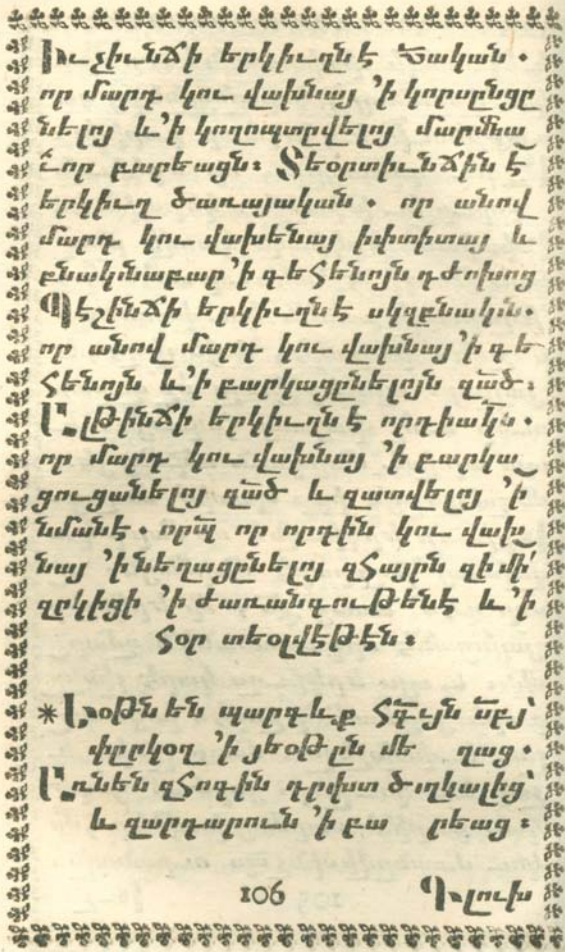 Իւչիւնճի երկիւղն է Ծական.
որ մարդ կու վախնայ ՚ի կորսընցը
նելոյ և ՚ի կողոպտըվելոյ մարմնա
ւոր բարեացն։ Տեօրտիւնճին է
երկիւղ ծառայական. որ անով
մարդ կու վախենայ խիտիտայ և
բնակնաբար ՚ի գեհենոյն դժոխոց
Պէշինճի երկիւղն է սկզբնակն.
որ անով մարդ կու վախնայ ՚ի գե
հենոյն և ՚ի բարկացընելոյն զա̄ծ։
Ըլթինճի երկիւղն է որդիակն.
որ մարդ կու վախնայ ՚ի բարկա
ցուցանելոյ զա̄ծ և զատվելոյ ՚ի
նմանէ. որպ̄ որ որդին կու վախ
նայ ՚ի նեղացընելոյ զհայրն զի մի՛
զրկիցի ՚ի ժառանգութենէ և ՚ի
հօր տեօլվէթէն։
* Եօթն են պարգևք հգ̄ւյն ս̄բյ՝
փըրկօղ ՚ի յեօթըն մե ղաց.
Ըռնեն զհոգին դրխտ ծղկալից՝
և զարդարուն ՚ի բա րեաց։
106
Գլուխ